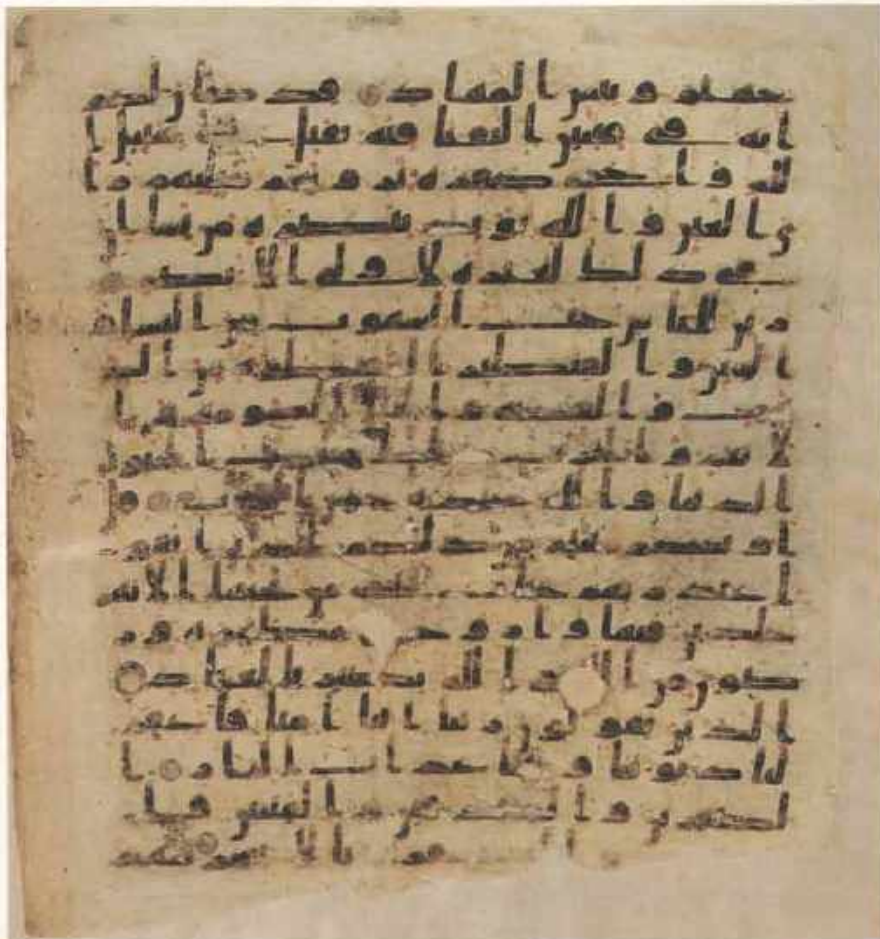 جهنم وبئس المهاد قد كان لكم
اية في فئتين التقتا فئة تقتل في سبيل ا
لله واخرى كافرة يرونهم مثليهم را
ي العين والله يؤيد بنصره من يشا ان
في ذلك لعبرة لاولي الابصر
زين للناس حب الشهوت من النسا و
البنين والقنطير المقنطرة من الذ
هب والفضة والخيل المسومة وا
لانعم والحرث ذلك متع الحيوة
الدنيا والله عنده حسن الماب قل
اونبئكم بخير من ذلكم للذين اتقو
ا عند ربهم جنت تجري من تحتها الانهر
خلدين فيها وازوج مطهرة ور
ضون من الله والله بصير بالعباد
الذين يقولون ربنا اننا امنا فاغفر
لنا ذنوبنا وقنا عذاب النار ا
لصبرين والصدقين والقنتين وا
لمنفقين والمستغفرين بالاسحار شهد